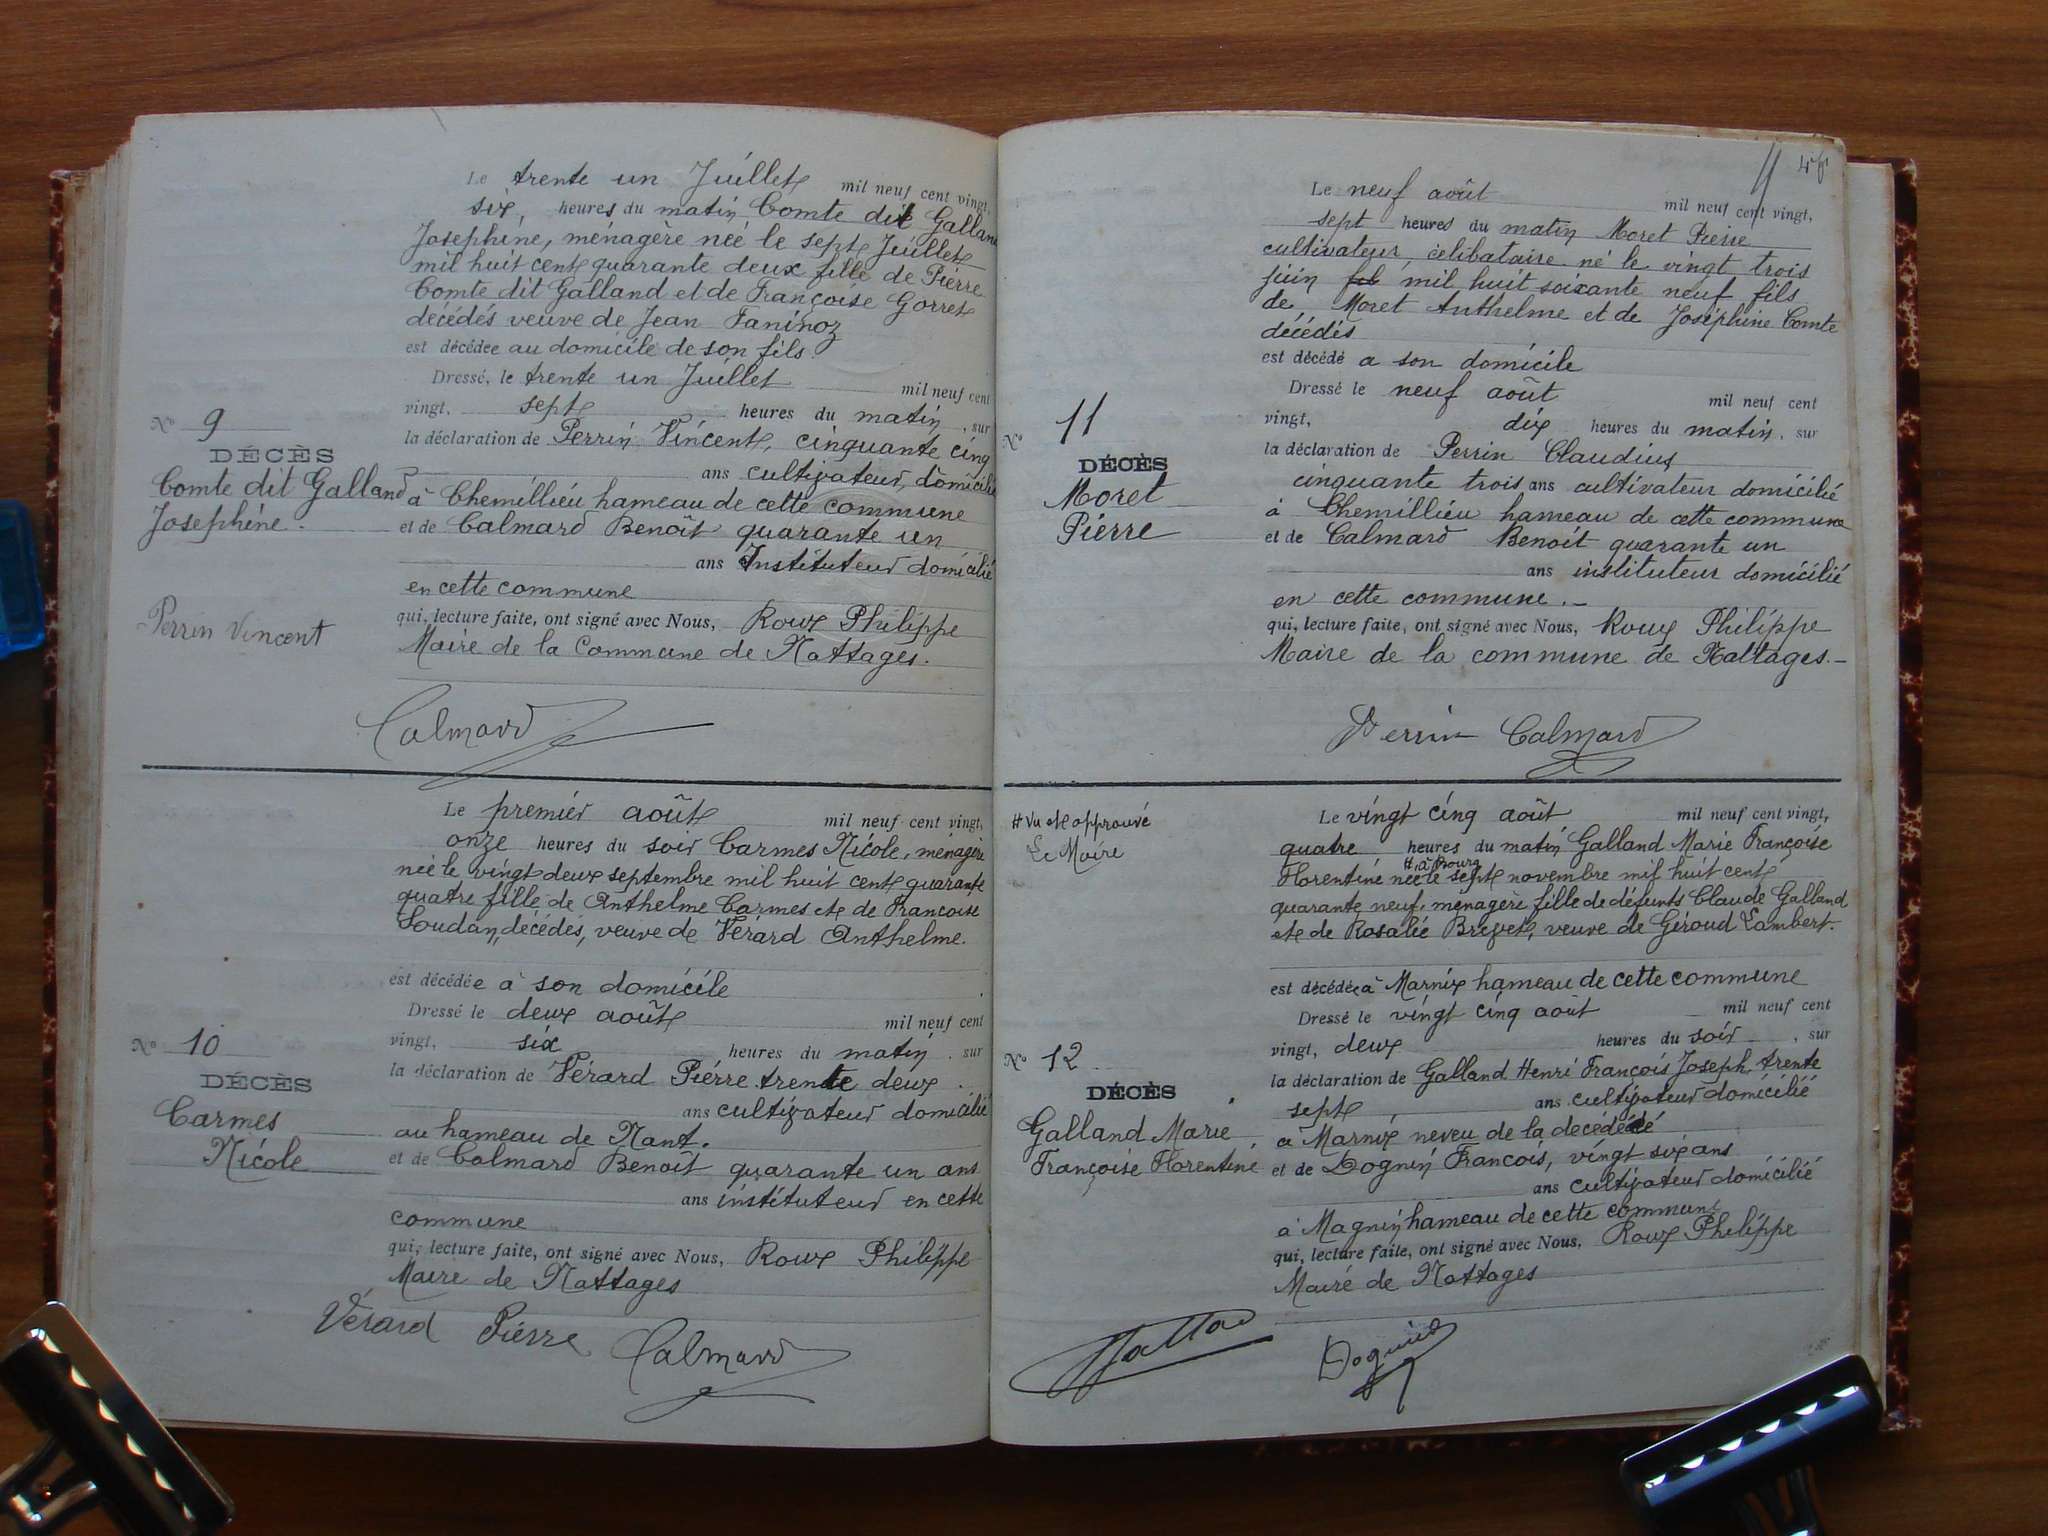 Le trente un Juillet mil neuf cent vingt,
six, heures du matin Comte dit Galland
Josephine, ménagère née le sept Juillet
mil huit cent quarante deux fille de Pierre
Comte dit Galland et de Françoise Gorret
décédés veuve de Jean Faninoz
est décédée au domicile de son fils
Dressé, le trente un Juillet mil neuf cent
vingt, sept heures du matin, sur
la déclaration de Perrin Vincent, cinquante cinq
ans cultivateur, domicilié
à Chemillieu hameau de cette commune
et de Calmard Benoît quarante un
ans Instituteur domicilié
en cette commune
qui, lecture faite, ont signé avec Nous, Roux Philippe
Maire de la Commune de Nattages.
N° 9
DÉCÈS
Comte dit Galland
Josephine.
Perrin Vincent
Calmard
Le premier août mil neuf cent vingt,
onze heures du soir Carmes Nicole, menagère
née le vingt deux septembre mil huit cent quarante
quatre fille de Anthelme Carmes et de Francoise
Soudan, décédés, veuve de Vérard Anthelme.
est décédée à son domicile
Dressé le deux août mil neuf cent
vingt, six heures du matin, sur
la déclaration de Vérard Piérre trente deux
ans cultivateur domicilié
au hameau de Nant.
et de Calmard Benoît quarante un ans
ans instituteur en cette
commune
qui, lecture faite, ont signé avec Nous, Roux Philippe
Maire de Nattages
N° 10
DÉCÈS
Carmes
Nicole
Vérard Piérre Calmard
Le neuf août mil neuf cent vingt,
sept heures du matin Moret Pierre
cultivateur, célibataire né le vingt trois
juin fils mil huit soixante neuf fils
de Moret Anthelme et de Joséphine Comte
décédés
est décédé a son domicile
Dressé le neuf août mil neuf cent
vingt, dix heures du matin, sur
la déclaration de Perrin Claudius
cinquante trois ans cultivateur domicilié
à Chemillieu hameau de cette commune
et de Calmard Benoit quarante un
ans instituteur domicilié
en cette commune.-
qui, lecture faite, ont signé avec Nous, Roux Philippe
Maire de la commune de Nattages.-
N° 11
DÉCÈS
Moret
Pierre
Perrin Calmard
# Vu et approuvé
Le Maire
Le vingt cinq août mil neuf cent vingt,
quatre heures du matin Galland Marie Françoise
# à Bourg
Florentine née le sept novembre mil huit cent
quarante neuf, menagère fille de défunts Claude Galland
et de Rosalie Brevet, veuve de Géroud Lambert.
est décédée à Marnix hameau de cette commune
Dressé le vingt cinq août mil neuf cent
vingt, deux heures du soir, sur
la déclaration de Galland Henri François Joseph, trente
sept ans cultivateur domicilié
à Marnix neveu de la decédée
et de Dognin François, vingt six ans
ans cultivateur domicilié
à Magnin hameau de cette commune
qui, lecture faite, ont signé avec Nous, Roux Philippe
Mairé de Nattages
N° 12
DÉCÈS
Galland Marie
Françoise Florentine
Dognin